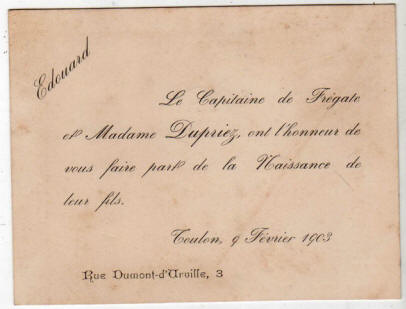 Edouard
Le Capitaine de Frégate
et Madame Dupriez, ont l'honneur de
vous faire part de la Naissance de
leur fils.
Toulon, 9 Février 1903
Rue Dumont-d'Urville, 3